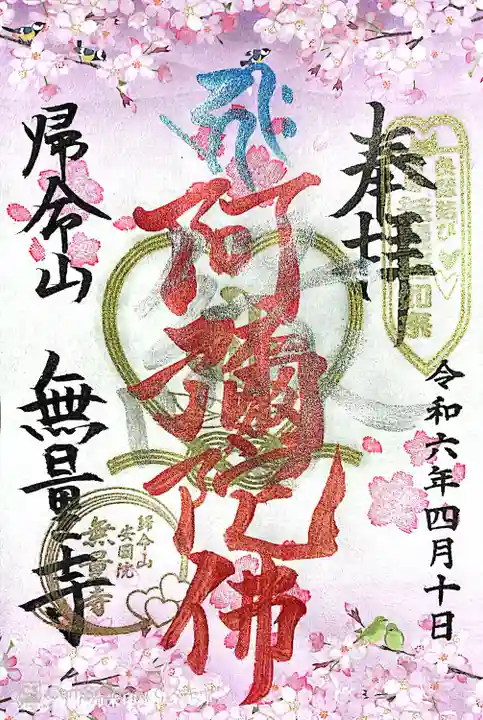 奉拝
令和六年四月十日
阿彌陀佛
帰命山 無量寺
帰命山
安國院
無量寺